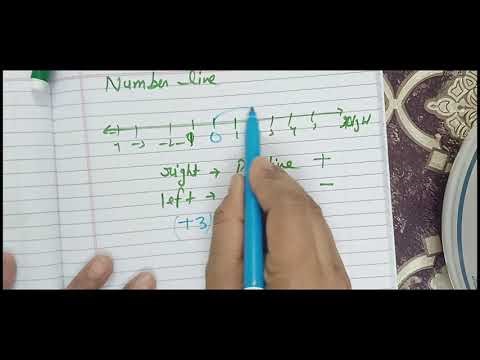 Number line
-3 -2 -1 0 1 3 4 5 Right
right → +
left → -
(+3)